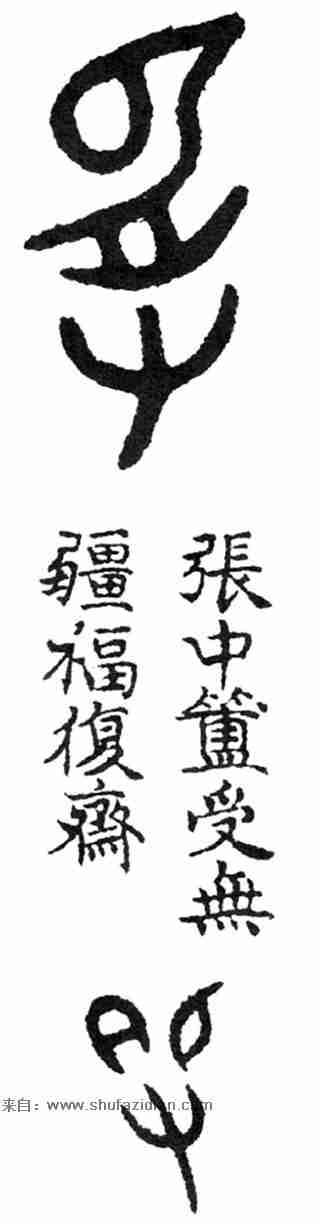 受
張中簠受無
疆福復齋
来自：www.shufazidian.com